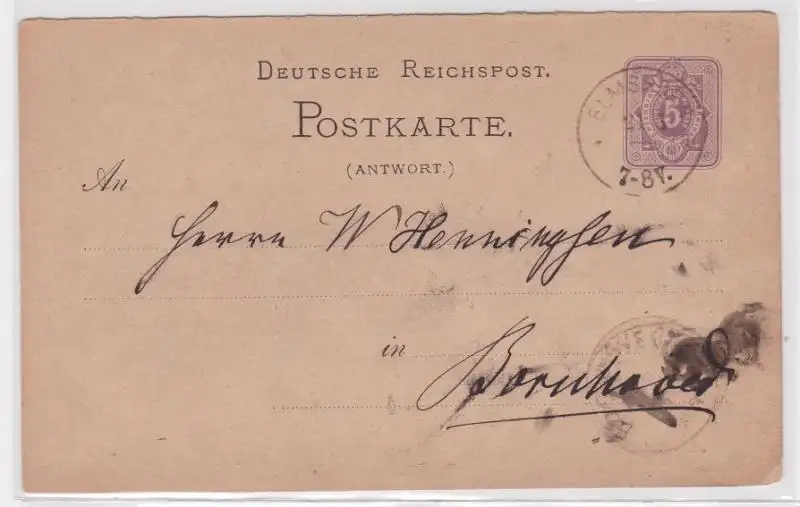 DEUTSCHE REICHSPOST.
POSTKARTE.
(ANTWORT.)
5
7-8V.
An
Herrn W Henningsen
in
Bornhoved